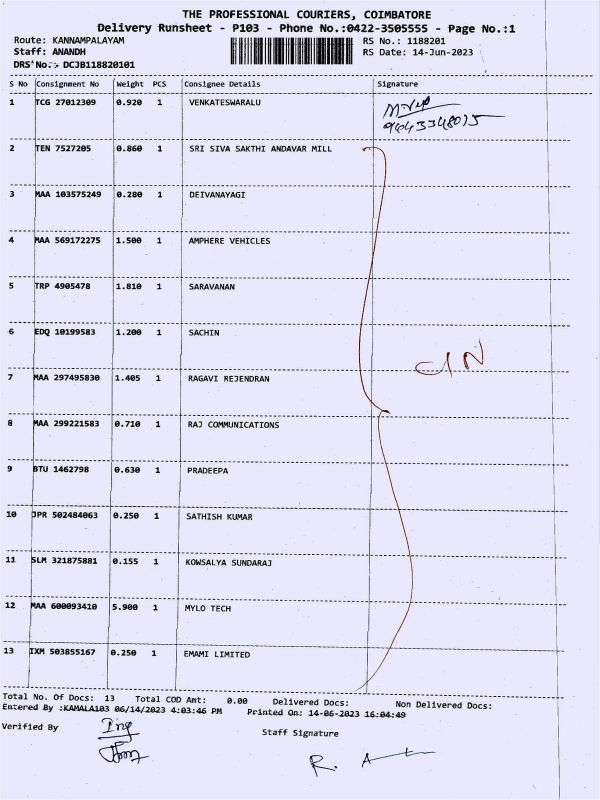 THE PROFESSIONAL COURIERS, COIMBATORE
Delivery Runsheet - P103 - Phone No.:0422-3505555 - Page No.:1
Route: KANNAMPALAYAM RS No.: 1188201
Staff: ANANDH RS Date: 14-Jun-2023
DRS No.: DCJB118820101
S No Consignment No Weight PCS Consignee Details Signature
1 TCG 27012309 0.920 1 VENKATESWARALU
9643348015
2 TEN 7527205 0.860 1 SRI SIVA SAKTHI ANDAVAR MILL
3 MAA 103575249 0.280 1 DEIVANAYAGI
4 MAA 569172275 1.500 1 AMPHERE VEHICLES
5 TRP 4905478 1.810 1 SARAVANAN
6 EDQ 10199583 1.200 1 SACHIN
7 MAA 297495830 1.405 1 RAGAVI REJENDRAN
8 MAA 299221583 0.710 1 RAJ COMMUNICATIONS
9 BTU 1462798 0.630 1 PRADEEPA
10 JPR 502484063 0.250 1 SATHISH KUMAR
11 SLM 321875881 0.155 1 KOWSALYA SUNDARAJ
12 MAA 600093410 5.900 1 MYLO TECH
13 IXM 503855167 0.250 1 EMAMI LIMITED
Total No. Of Docs: 13 Total COD Amt: 0.00 Delivered Docs: Non Delivered Docs:
Entered By :KAMALA103 06/14/2023 4:03:46 PM Printed On: 14-06-2023 16:04:49
Verified By
Staff Signature
R. A